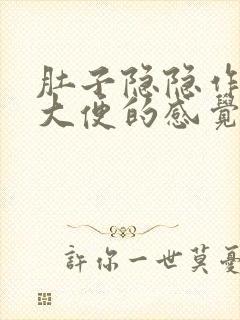 肚子隐隐作
大便的感覺
許你一世莫憂